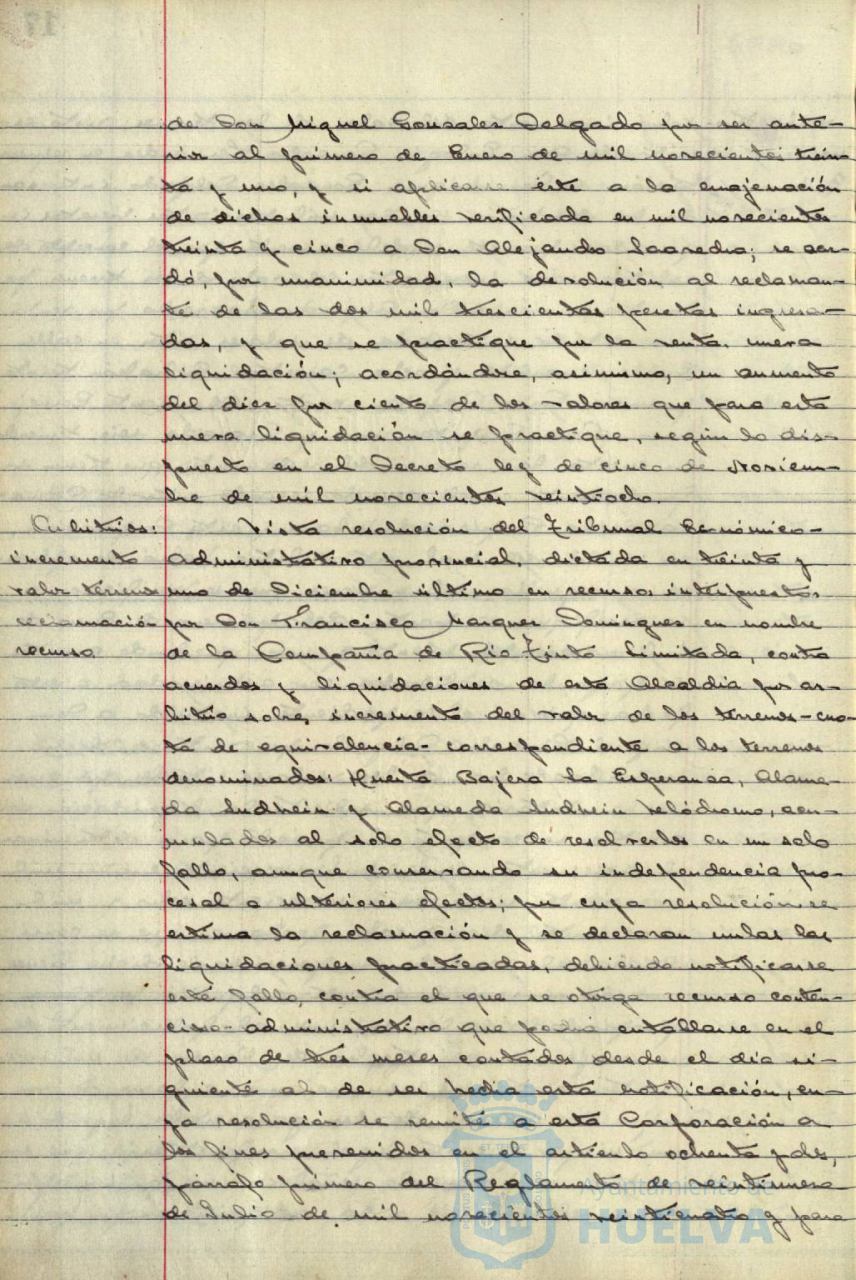 de Don Miguel Gonzalez Delgado por ser ante-
rior al primero de Enero de mil novecientos trein-
ta y uno, y si aplicarse este a la enajenación
de dichos inmuebles verificada en mil novecientos
treinta y cinco a Don Alejandro Saavedra; se acor-
dó, por unanimidad, la devolución al reclaman-
te de las dos mil trescientas pesetas ingresa-
das, y que se practique por la renta, nueva
liquidación; acordándose, asimismo, un aumento
del diez por ciento de los valores que para esta
nueva liquidación se practique, según lo dis-
puesto en el Decreto ley de cinco de Noviem-
bre de mil novecientos veintiocho.
Arbitrios:
incremento
valor terrenos
reclamación
recurso
Vista resolución del Tribunal Económico-
administrativo provincial, dictada en treinta y
uno de Diciembre último en recursos interpuestos
por Don Francisco Marquez Dominguez en nombre
de la Compañía de Rio Tinto Limitada, contra
acuerdos y liquidaciones de esta Alcaldía por ar-
bitrio sobre incremento del valor de los terrenos-cuo-
ta de equivalencia- correspondiente a los terrenos
denominados: Huerta Bajera la Esperanza, Alame-
da Sundheim y Alameda Sundheim Velódromo, acu-
mulados al solo efecto de resolverlos en un solo
fallo, aunque conservando su independencia pro-
cesal a ulteriores efectos; por cuya resolución se
estima la reclamación y se declaran nulas las
liquidaciones practicadas, debiendo notificarse
este fallo, contra el que se otorga recurso conten-
cioso-administrativo que podrá entablarse en el
plazo de tres meses contados desde el día si-
guiente al de ser hecha esta notificación, cu-
ya resolución se remite a esta Corporación a
los fines prevenidos en el artículo ochenta y dos,
párrafo primero del Reglamento de veintinueve
de Julio de mil novecientos veinticuatro y para
Ayuntamiento de
HUELVA